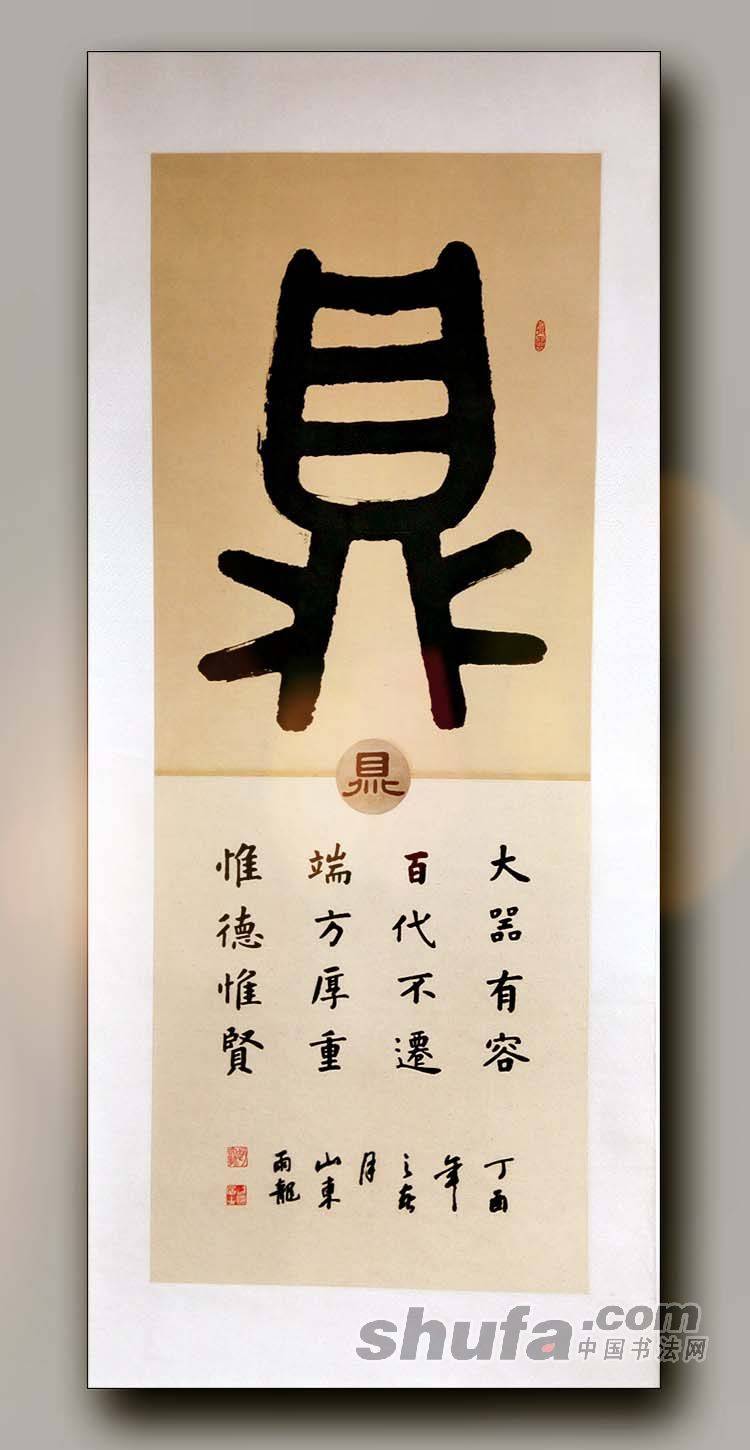 鼎
鼎
大噐有容
百代不遷
端方厚重
惟德惟賢
丁酉
年
之春
月
山東
雨龍
shufa.com
中国书法网